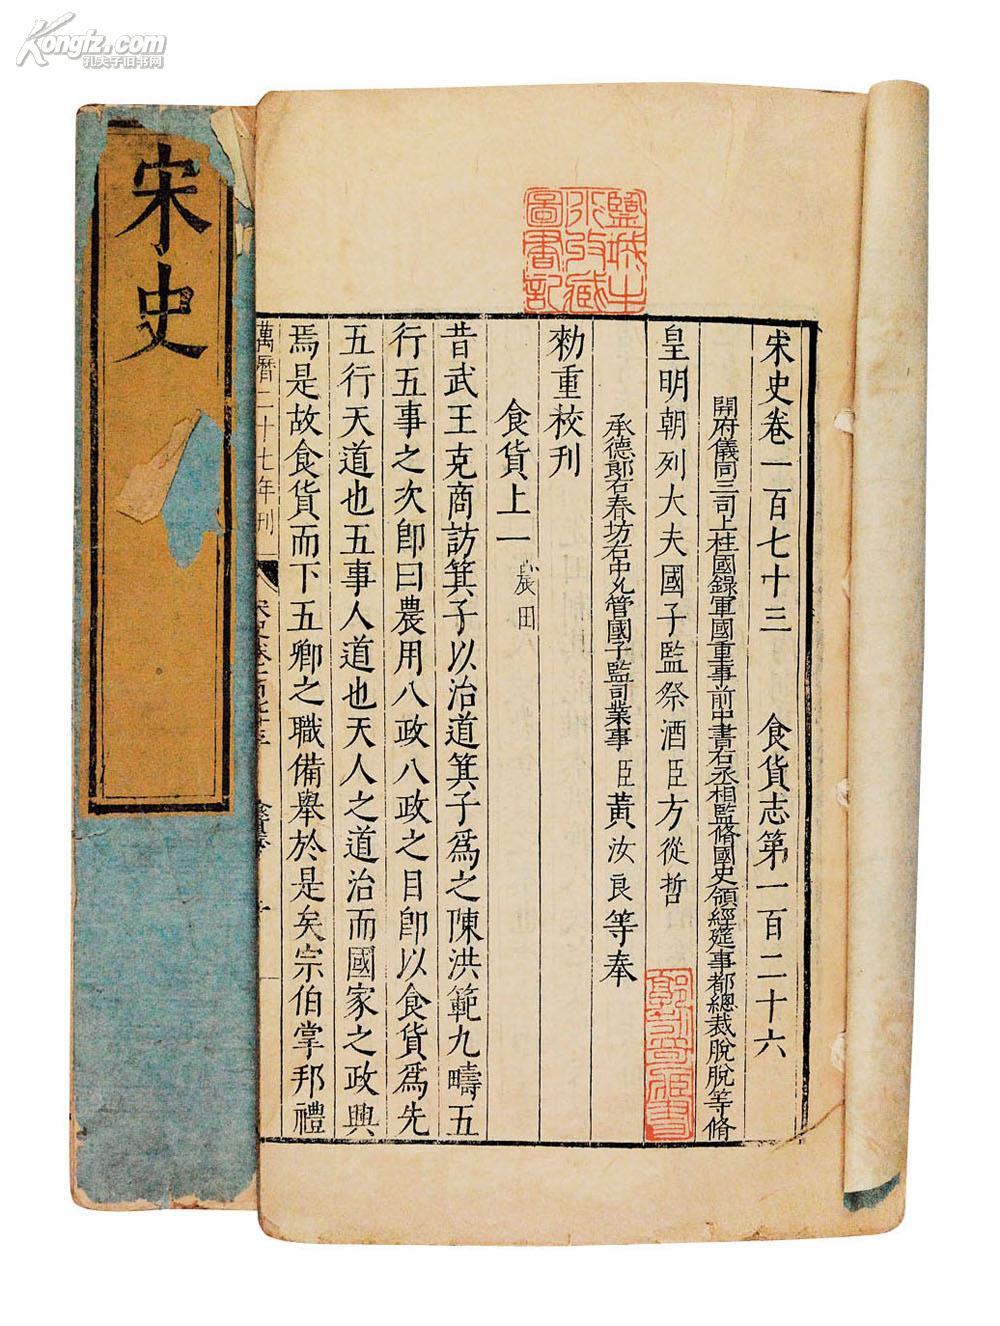 Kongfz.com
孔夫子旧书网
宋史
鹽城土
水攷藏
圖書記
宋史卷一百七十三 食貨志第一百二十六
開府儀同三司上柱國錄軍國重事前中書右丞相監脩國史領經筵事都總裁脫脫等脩
皇明朝列大夫國子監祭酒臣方從哲
承德郎右春坊右中允管國子監司業事臣黃汝良等奉
勑重校刊
食貨上一 農田
昔武王克商訪箕子以治道箕子爲之陳洪範九疇五
行五事之次卽曰農用八政八政之目卽以食貨爲先
五行天道也五事人道也天人之道治而國家之政興
焉是故食貨而下五卿之職備舉於是矣宗伯掌邦禮
萬曆二十七年刊
宋史卷一百七十三